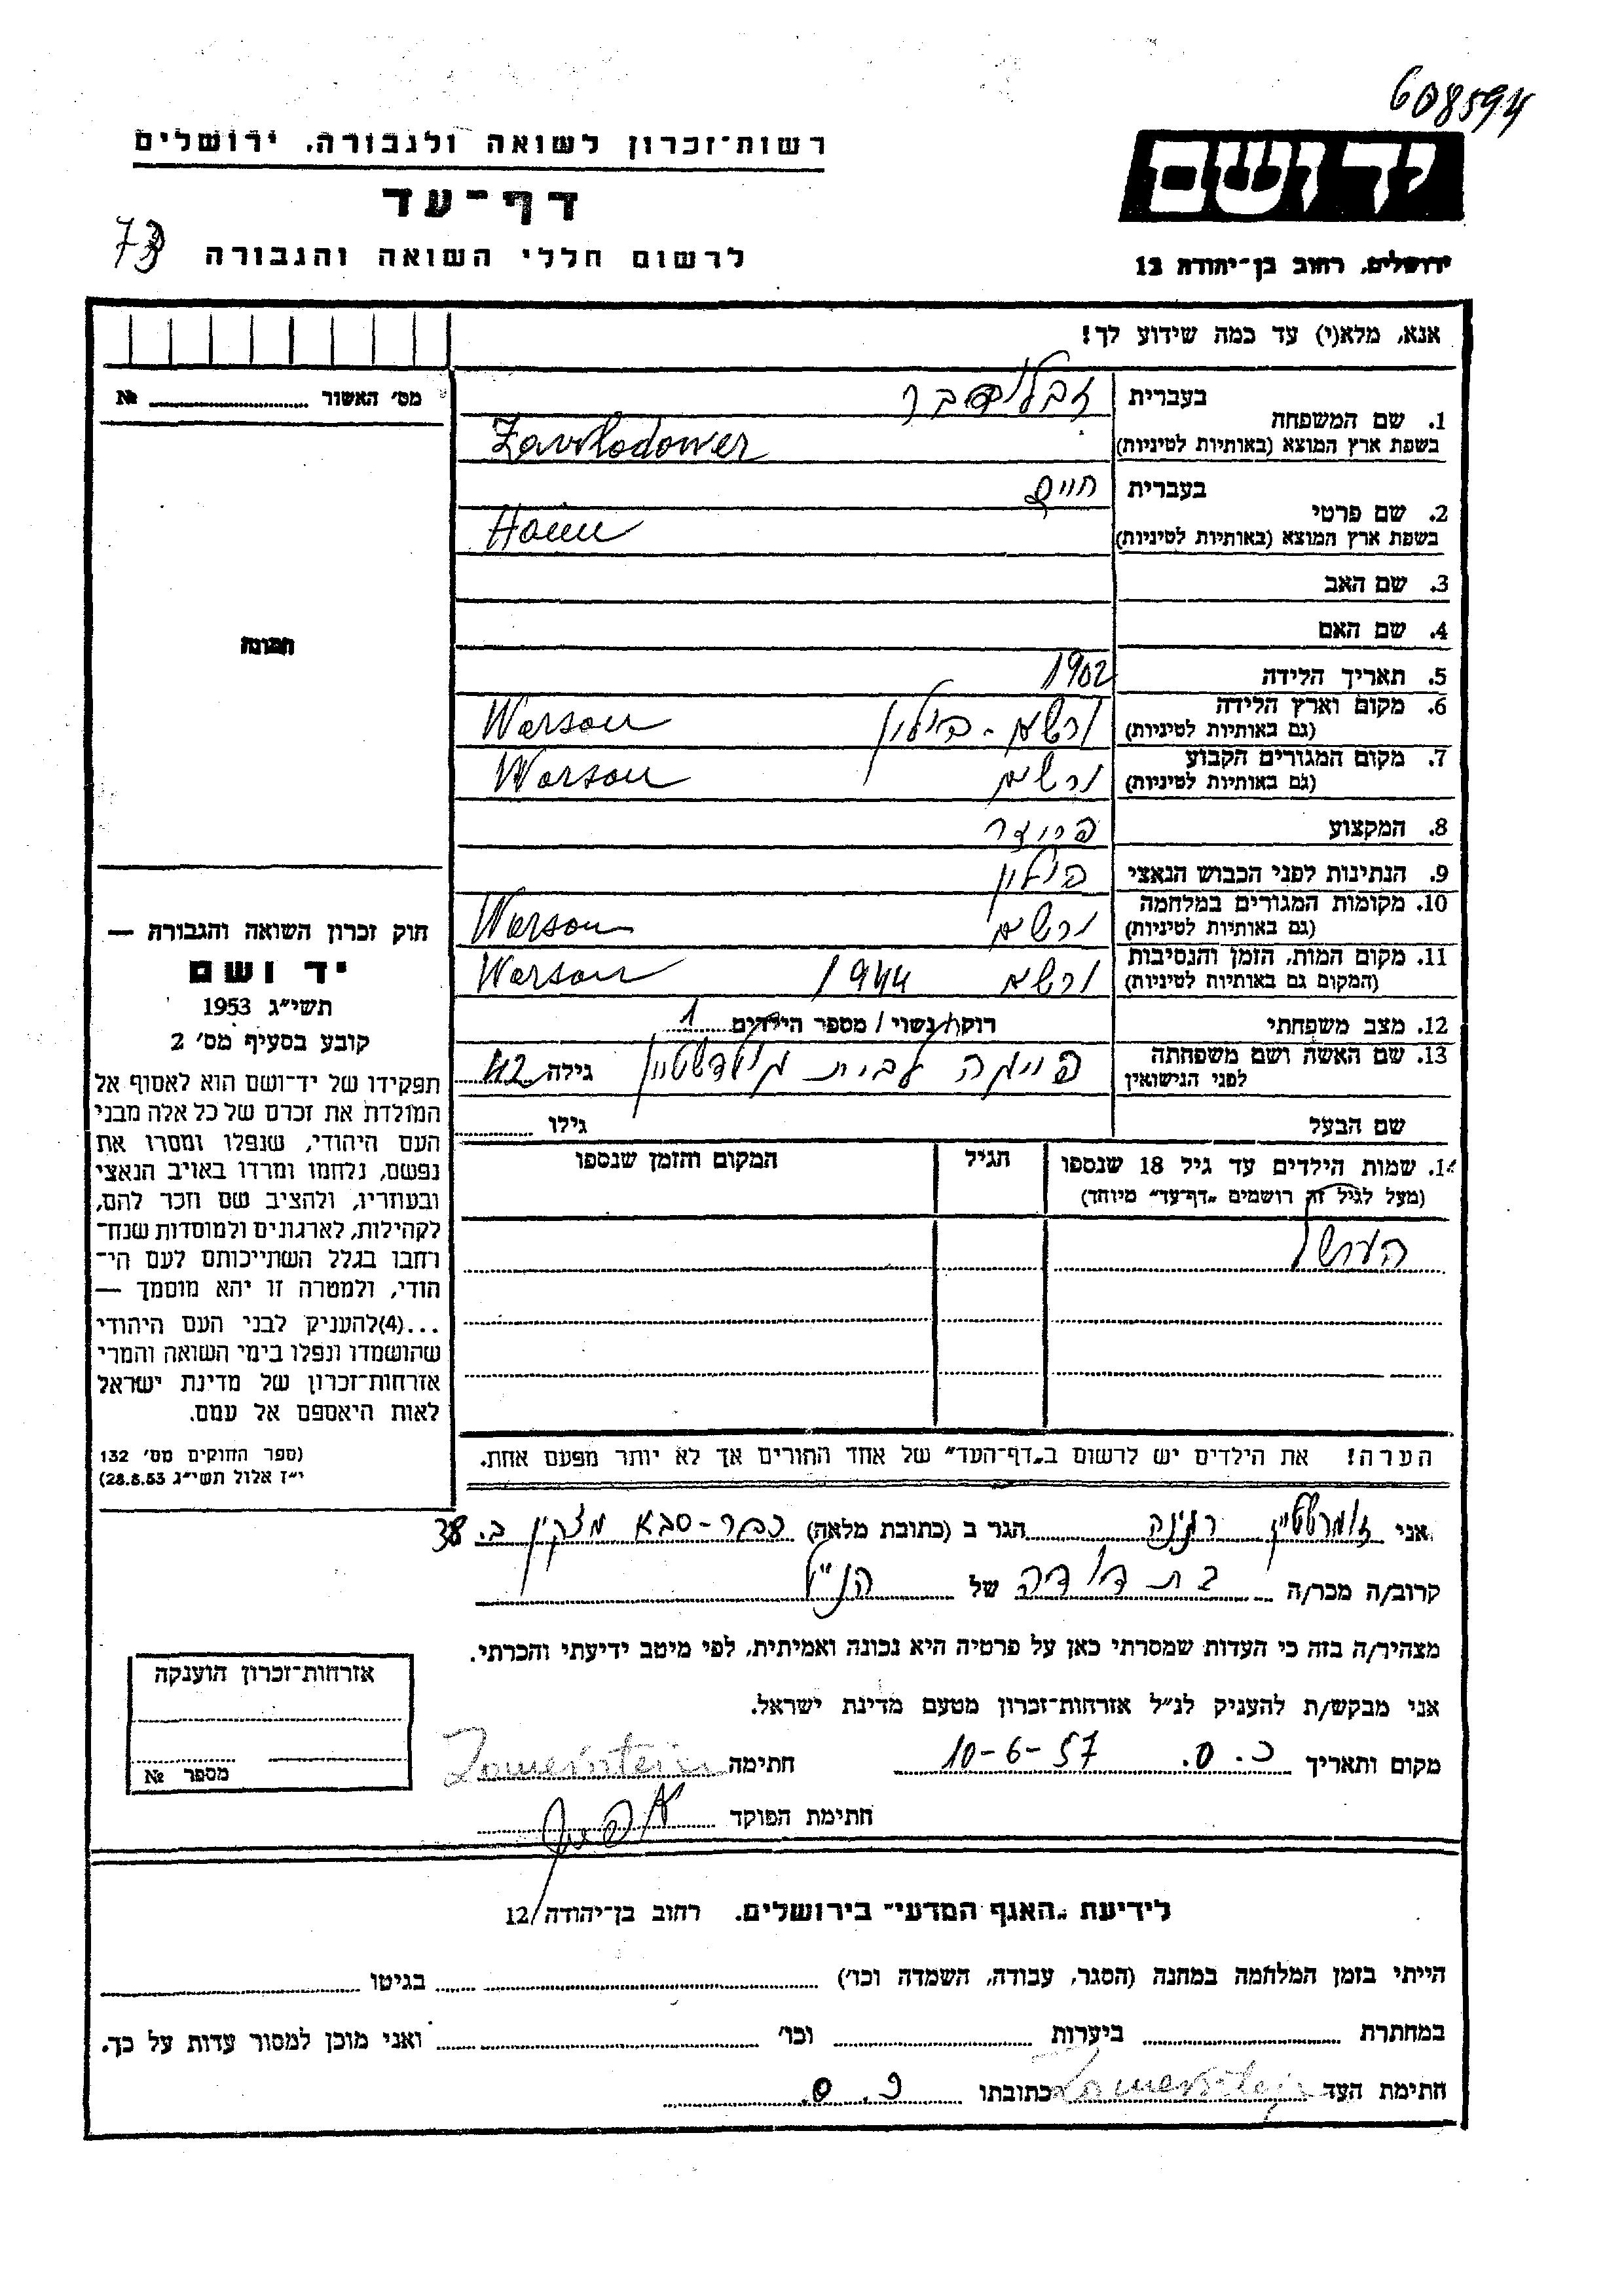 608594
רשות־זכרון לשואה ולגבורה, ירושלים
יד ושם
דף־עד
73
לרשום חללי השואה והגבורה
ירושלים, רחוב בן־יהודה 12
אנא, מלא(י) עד כמה שידוע לך!
מס׳ האשור № 
1. שם המשפחה
בעברית
בשפת ארץ המוצא (באותיות לטיניות) Zawlodower
2. שם פרטי
בעברית חיים
בשפת ארץ המוצא (באותיות לטיניות) Haim
3. שם האב
4. שם האם
תמונה
5. תאריך הלידה 1902
6. מקום וארץ הלידה (גם באותיות לטיניות) ורשה - פולין Warsou
7. מקום המגורים הקבוע (גם באותיות לטיניות) ורשה Warsou
8. המקצוע
9. הנתינות לפני הכבוש הנאצי פולין
10. מקומות המגורים במלחמה (גם באותיות לטיניות) ורשה Warsou
11. מקום המות, הזמן והנסיבות (המקום גם באותיות לטיניות) ורשה 1944 Warsou
12. מצב משפחתי רוק/נשוי/ מספר הילדים 1
13. שם האשה ושם משפחתה לפני הנישואין לבית גולדשטיין גילה 42
שם הבעל גילו
14. שמות הילדים עד גיל 18 שנספו
(מעל לגיל זה רושמים „דף־עד״ מיוחד)
הגיל
המקום והזמן שנספו
חוק זכרון השואה והגבורה —
יד ושם
תשי״ג 1953
קובע בסעיף מס׳ 2
תפקידו של יד־ושם הוא לאסוף אל
המולדת את זכרם של כל אלה מבני
העם היהודי, שנפלו ומסרו את
נפשם, נלחמו ומרדו באויב הנאצי
ובעוזריו, ולהציב שם וזכר להם,
לקהילות, לארגונים ולמוסדות שנח־
רחבו בגלל השתייכותם לעם הי־
הודי, ולמטרה זו יהא מוסמך —
...(4)להעניק לבני העם היהודי
שהושמדו ונפלו בימי השואה והמרי
אזרחות־זכרון של מדינת ישראל
לאות היאספם אל עמם.
(ספר החוקים מס׳ 132
י״ז אלול תשי״ג 28.8.53)
הערה! את הילדים יש לרשום ב„דף־העד״ של אחד ההורים אך לא יותר מפעם אחת.
אני זומרשטיין רגינה הגר ב (כתובת מלאה) כפר-סבא מצקין ב. 38
קרוב/ה מכר/ה בת דודה של הנ״ל
מצהיר/ה בזה כי העדות שמסרתי כאן על פרטיה היא נכונה ואמיתית, לפי מיטב ידיעתי והכרתי.
אני מבקש/ת להעניק לנ״ל אזרחות־זכרון מטעם מדינת ישראל.
מקום ותאריך כ.ס. 10-6-57 חתימה
חתימת הפוקד
אזרחות־זכרון הוענקה
מספר №
לידיעת „האגף המדעי״ בירושלים. רחוב בן־יהודה 12
הייתי בזמן המלחמה במחנה (הסגר, עבודה, השמדה וכו׳) בגיטו
במחתרת ביערות וכו׳ ואני מוכן למסור עדות על כך.
חתימת העד כתובתו כ.ס.